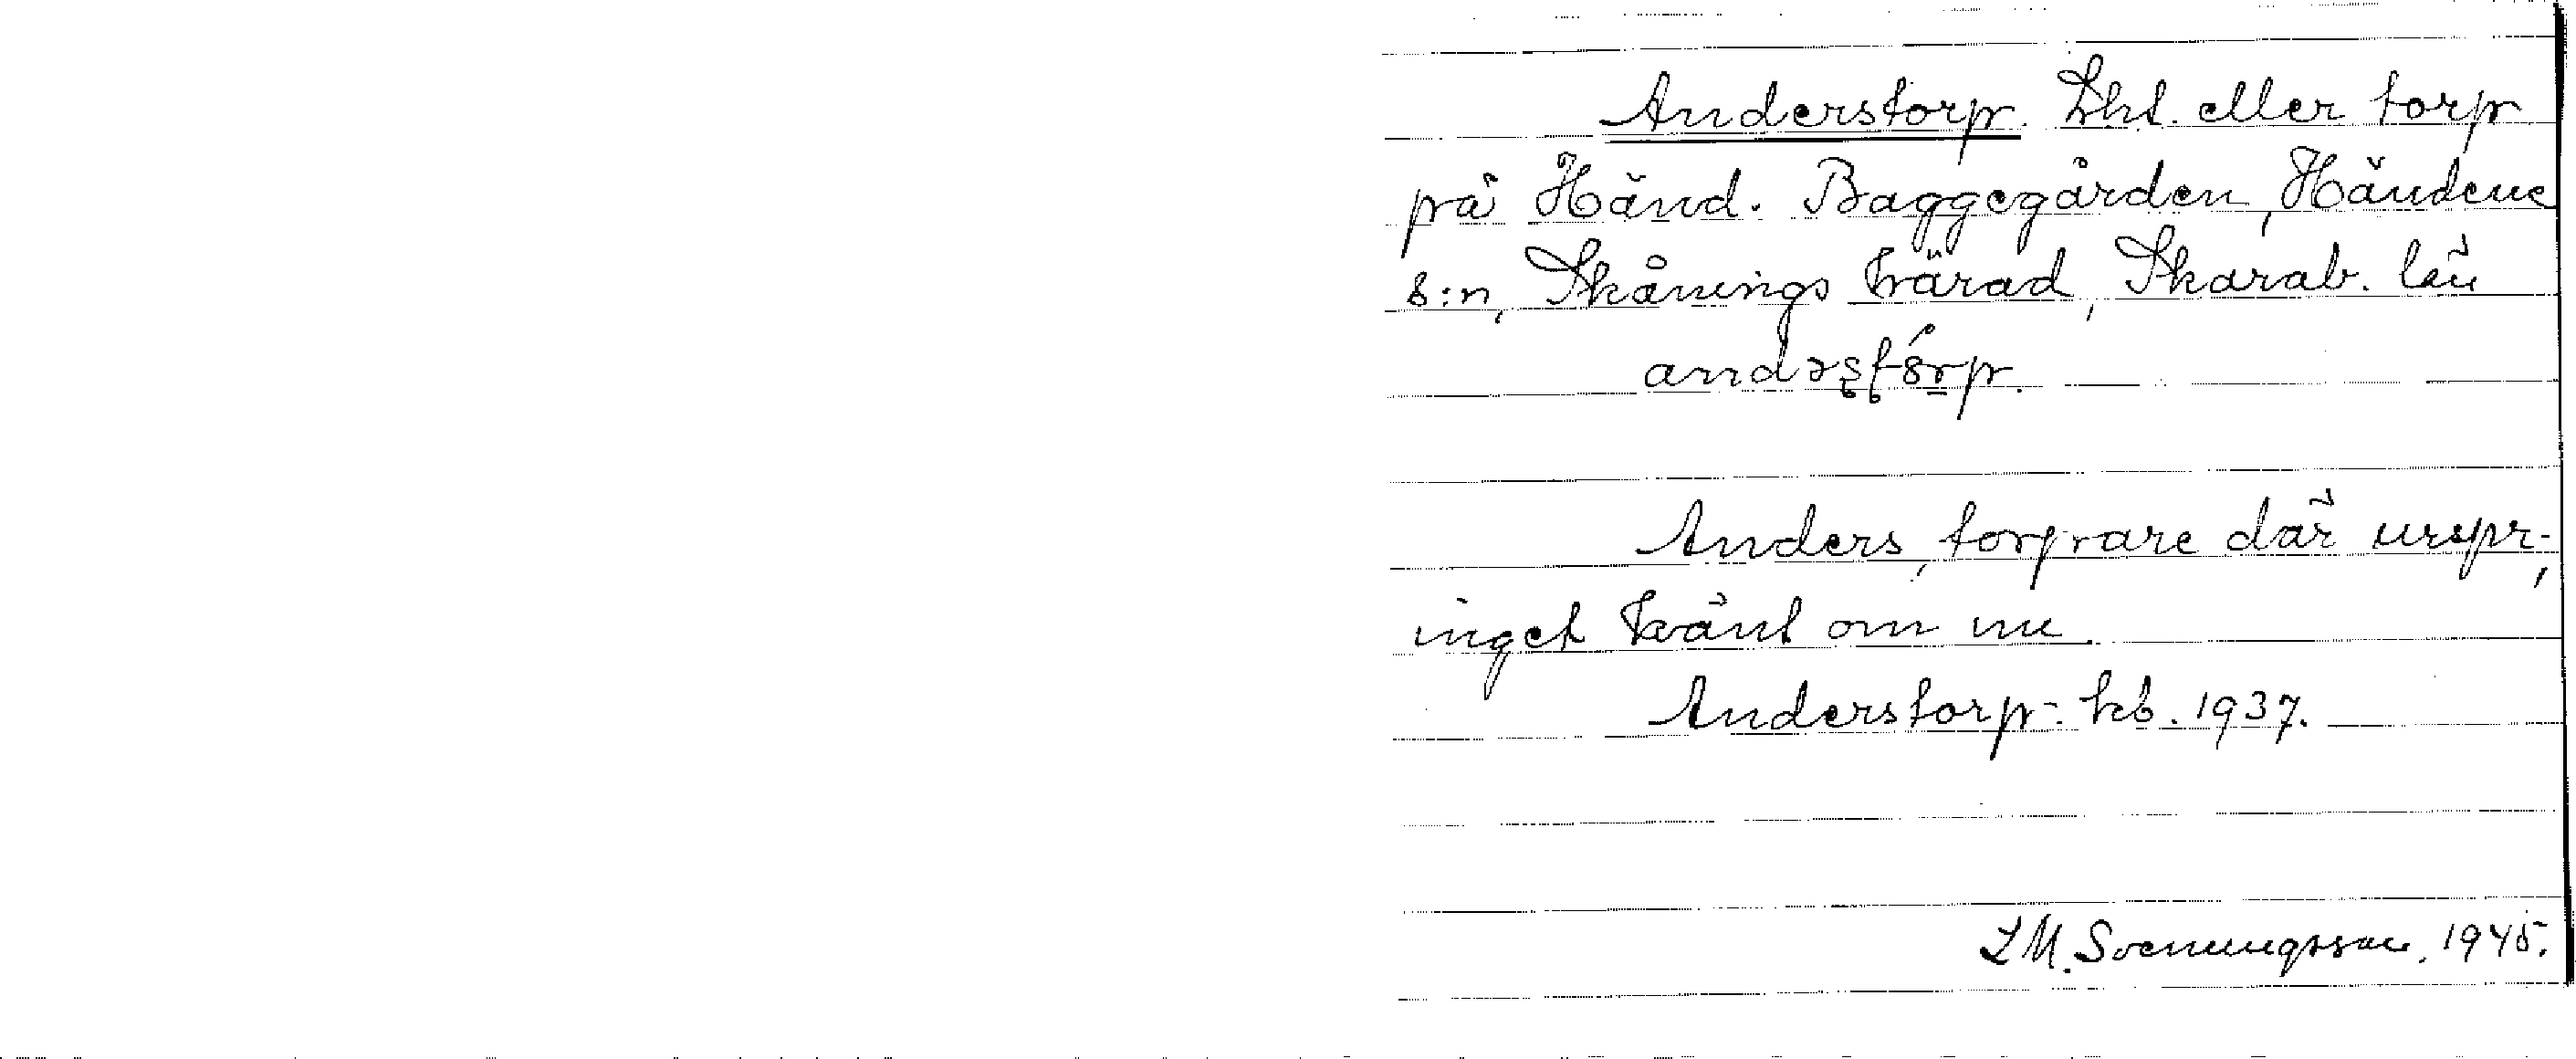 Anderstorp. Lht. eller torp
på Händ. Baggegården, Händene
s:n, Skånings härad, Skarab. län
andəstórp.
Anders, torpare där urspr.,
inget känt om nu.
Anderstorp - kb. 1937.
L M. Svenungsson. 1945.